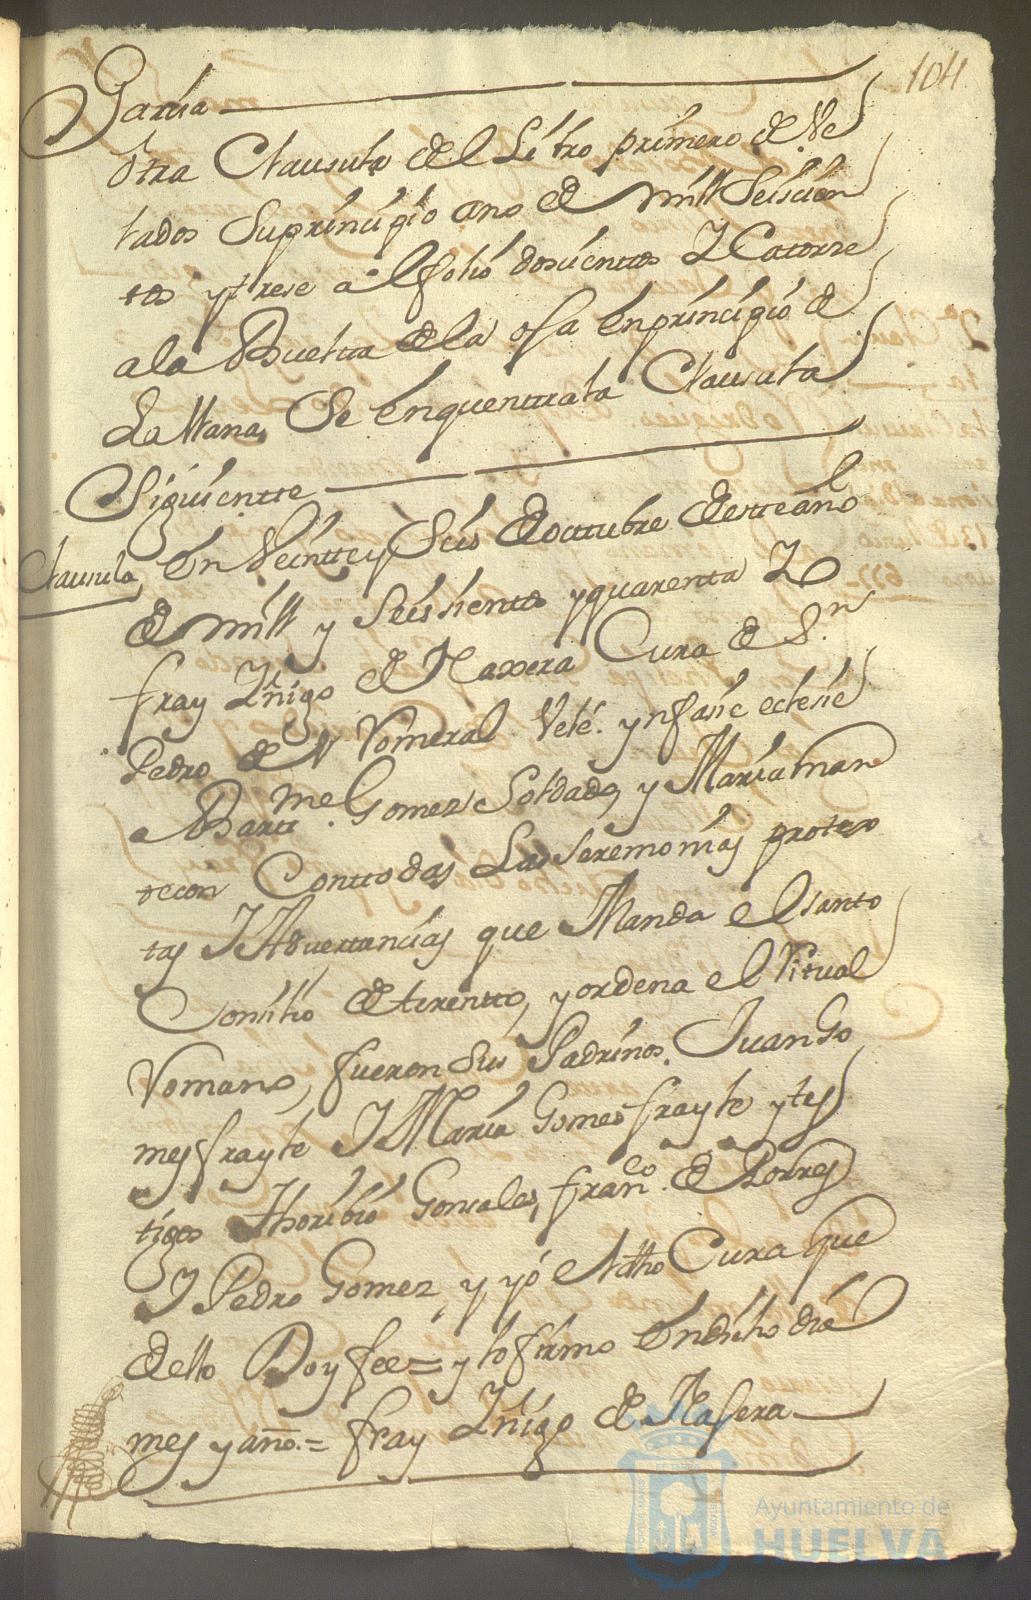 104
Garcia
otra Clausula del Libro primero de Ve
lados Suprincipio ano de mill Seiscien
tos ytrese al folio dosientos Y Catorse
ala Buelta dela oja enprincipio de
La llana, Se enquentrala Clausula
Siguientte
Clausula, En Veinttey Seis de octtubre deste año
de mill y Seissientos yquarenta Yo
fray Yñigo de Naxera Cura de Sn
Pedro de V Vomeral Velé. ynfasie eclesie
a Barme. Gomez Soldado, y Maria man
tecon Conttodas Las Seremonias protex
tas Y Advertencias que Manda el santo
Consilio de trentto, yordena el Ritual
Romano, fueron Sus Padrinos. Juan Go
mes frayle Y Maria Gomes frayle ytes
tigos thoribio Gonsales, franco. de Torres
Y Pedro Gomez, y yó el dho Cura que
dello Doy fee = y lo firmo En dicho dia
mes yaño. = fray Yñigo de Nasera
Ayuntamiento de
HUELVA